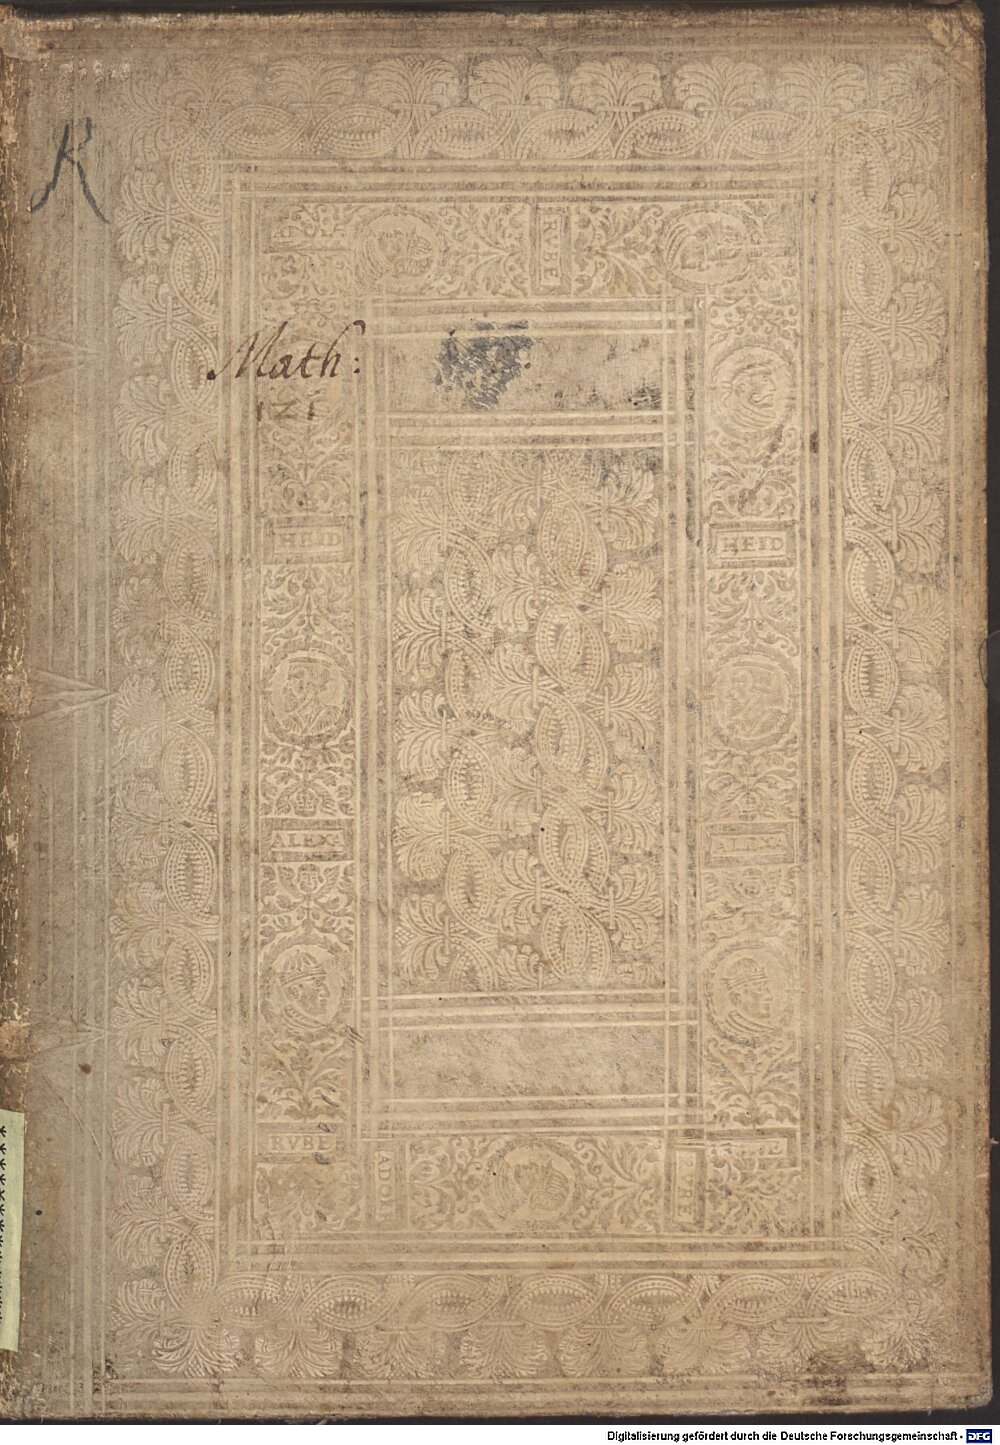 K
RVBE
Math:
121
HEID
HEID
ALEXA
ALEXA
RVBE
ADOL
Digitalisierung gefördert durch die Deutsche Forschungsgemeinschaft - DFG